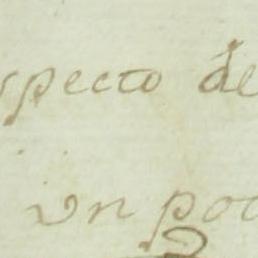 specto de
un poc